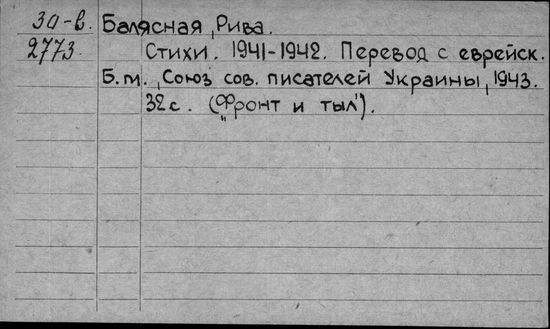 3а-в. Балясная, Рива.
2773. Стихи. 1941-1942. Перевод с еврейск.
Б.м., Союз сов. писателей Украины, 1943.
32 с. („Фронт и тыл").